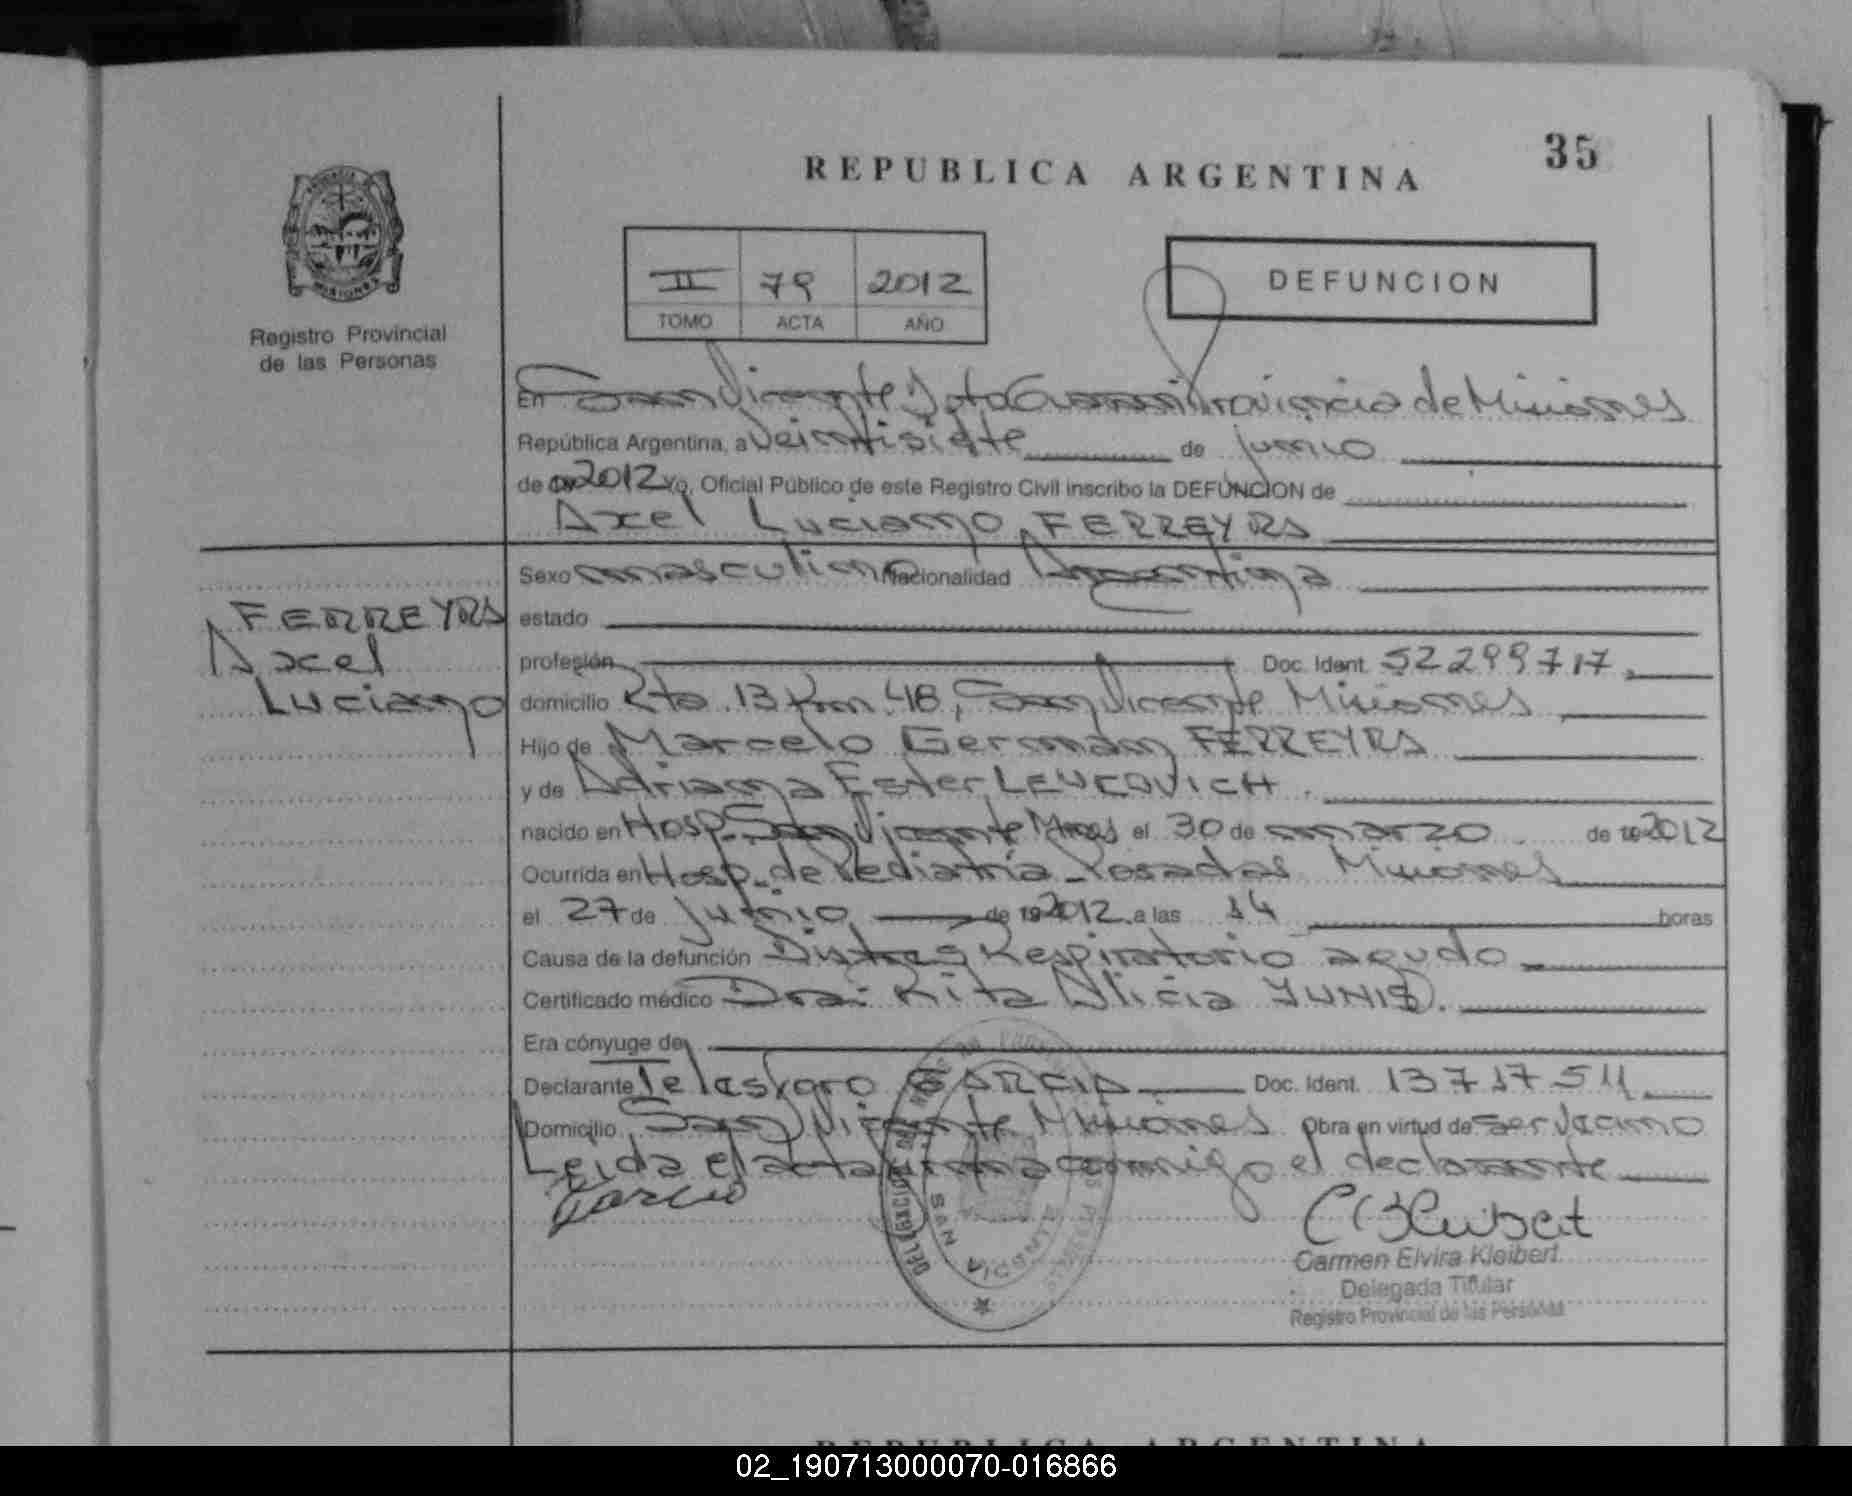 35
REPUBLICA ARGENTINA
Registro Provincial
de las Personas
II 79 2012
TOMO ACTA AÑO
DEFUNCION
En San Vicente Dpto Guarani Provincia de Misiones
República Argentina, a Veintisiete de junio
de 2012 Yo, Oficial Público de este Registro Civil inscribo la DEFUNCION de
Axel Luciano FERREYRA
FERREYRA
Axel
Luciano
Sexo masculino Nacionalidad Argentina
estado
profesión Doc. Ident. 52299717
domicilio Rta. 13 Km. 48, San Vicente Misiones
Hijo de Marcelo German FERREYRA
y de Adriana Ester LEUCOVICH.
nacido en Hosp. San Vicente Mnes el 30 de marzo de 192012
Ocurrida en Hosp. de Pediatría - Posadas Misiones
el 27 de Junio de 192012 a las 14 horas
Causa de la defunción Distres Respiratorio agudo
Certificado médico Dra: Rita Alicia YUNIS.
Era cónyuge de
Declarante Telesforo GARCIA Doc. Ident. 13717511
Domicilio San Vicente Misiones Obra en virtud de ser vecino
Leida el acta firma conmigo el declarante
Garcia
CEKleibert
Carmen Elvira Kleibert
Delegada Titular
Registro Provincial de las Personas
SAN VICENTE
REPUBLICA ARGENTINA
02_190713000070-016866